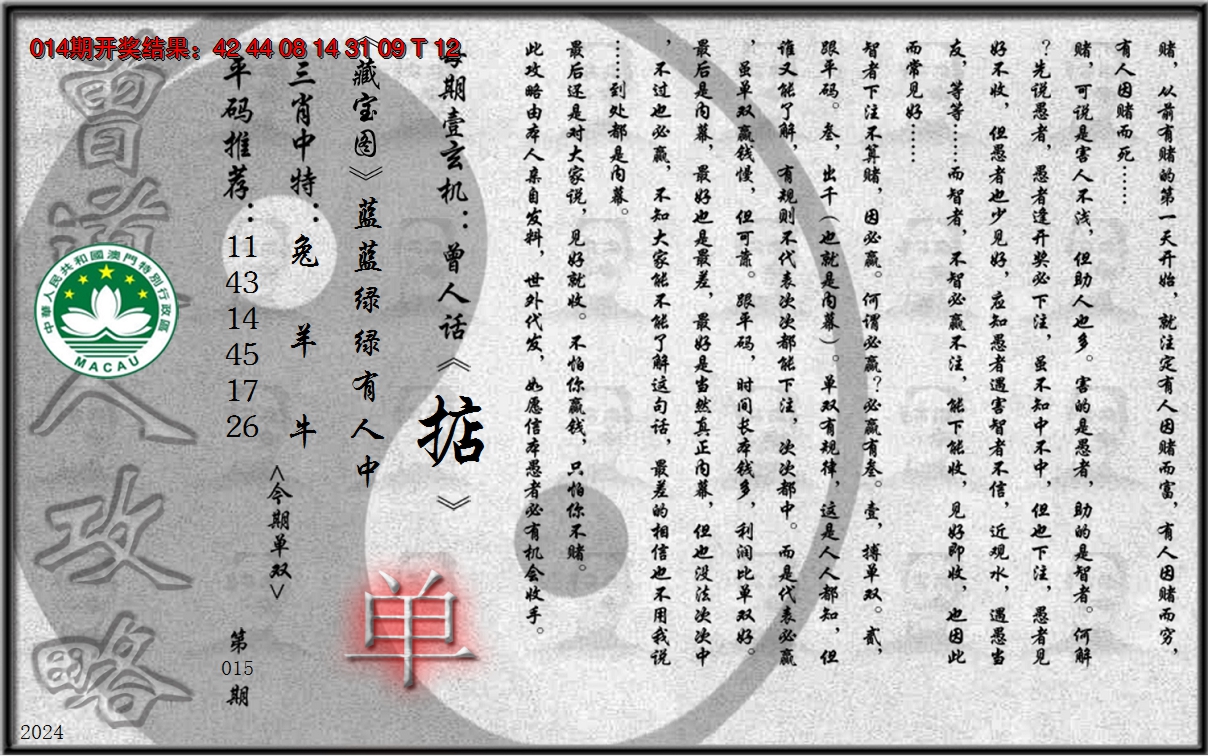 014期开奖结果：42 44 08 14 31 09 T 12
赌，从前有赌的第一天开始，就注定有人因赌而富，有人因赌而穷，
有人因赌而死……
赌，可说是害人不浅，但助人也多。害的是愚者，助的是智者。何解
？先说愚者，愚者逢开奖必下注，虽不知中不中，但也下注，愚者见
好不收，但愚者也少见好，应知愚者遇害智者不信，近观水，遇愚当
友，等等……而智者，不智必赢不注，能下能收，见好即收，也因此
而常见好……
智者下注不算赌，因必赢。何谓必赢？必赢有叁。壹，搏单双。贰，
跟平码。叁，出千（也就是内幕）。单双有规律，这是人人都知，但
谁又能了解，有规则不代表次次都能下注，次次都中。而是代表必赢
，虽单双赢钱慢，但可靠。跟平码，时间长本钱多，利润比单双好。
最后是内幕，最好也是最差，最好是当然真正内幕，但也没法次次中
，不过也必赢，不知大家能不能了解这句话，最差的相信也不用我说
……到处都是内幕。
最后还是对大家说，见好就收。不怕你赢钱，只怕你不赌。
此攻略由本人亲自发料，世外代发，如愿信本愚者必有机会收手。
每期壹玄机：曾人话《掂》
《藏宝图》蓝蓝绿绿有人中
三肖中特：兔 羊 牛
平码推荐：11 43 14 45 17 26
<今期单双>
单
第015期
曾道人攻略
中華人民共和國澳門特別行政區
MACAU
2024